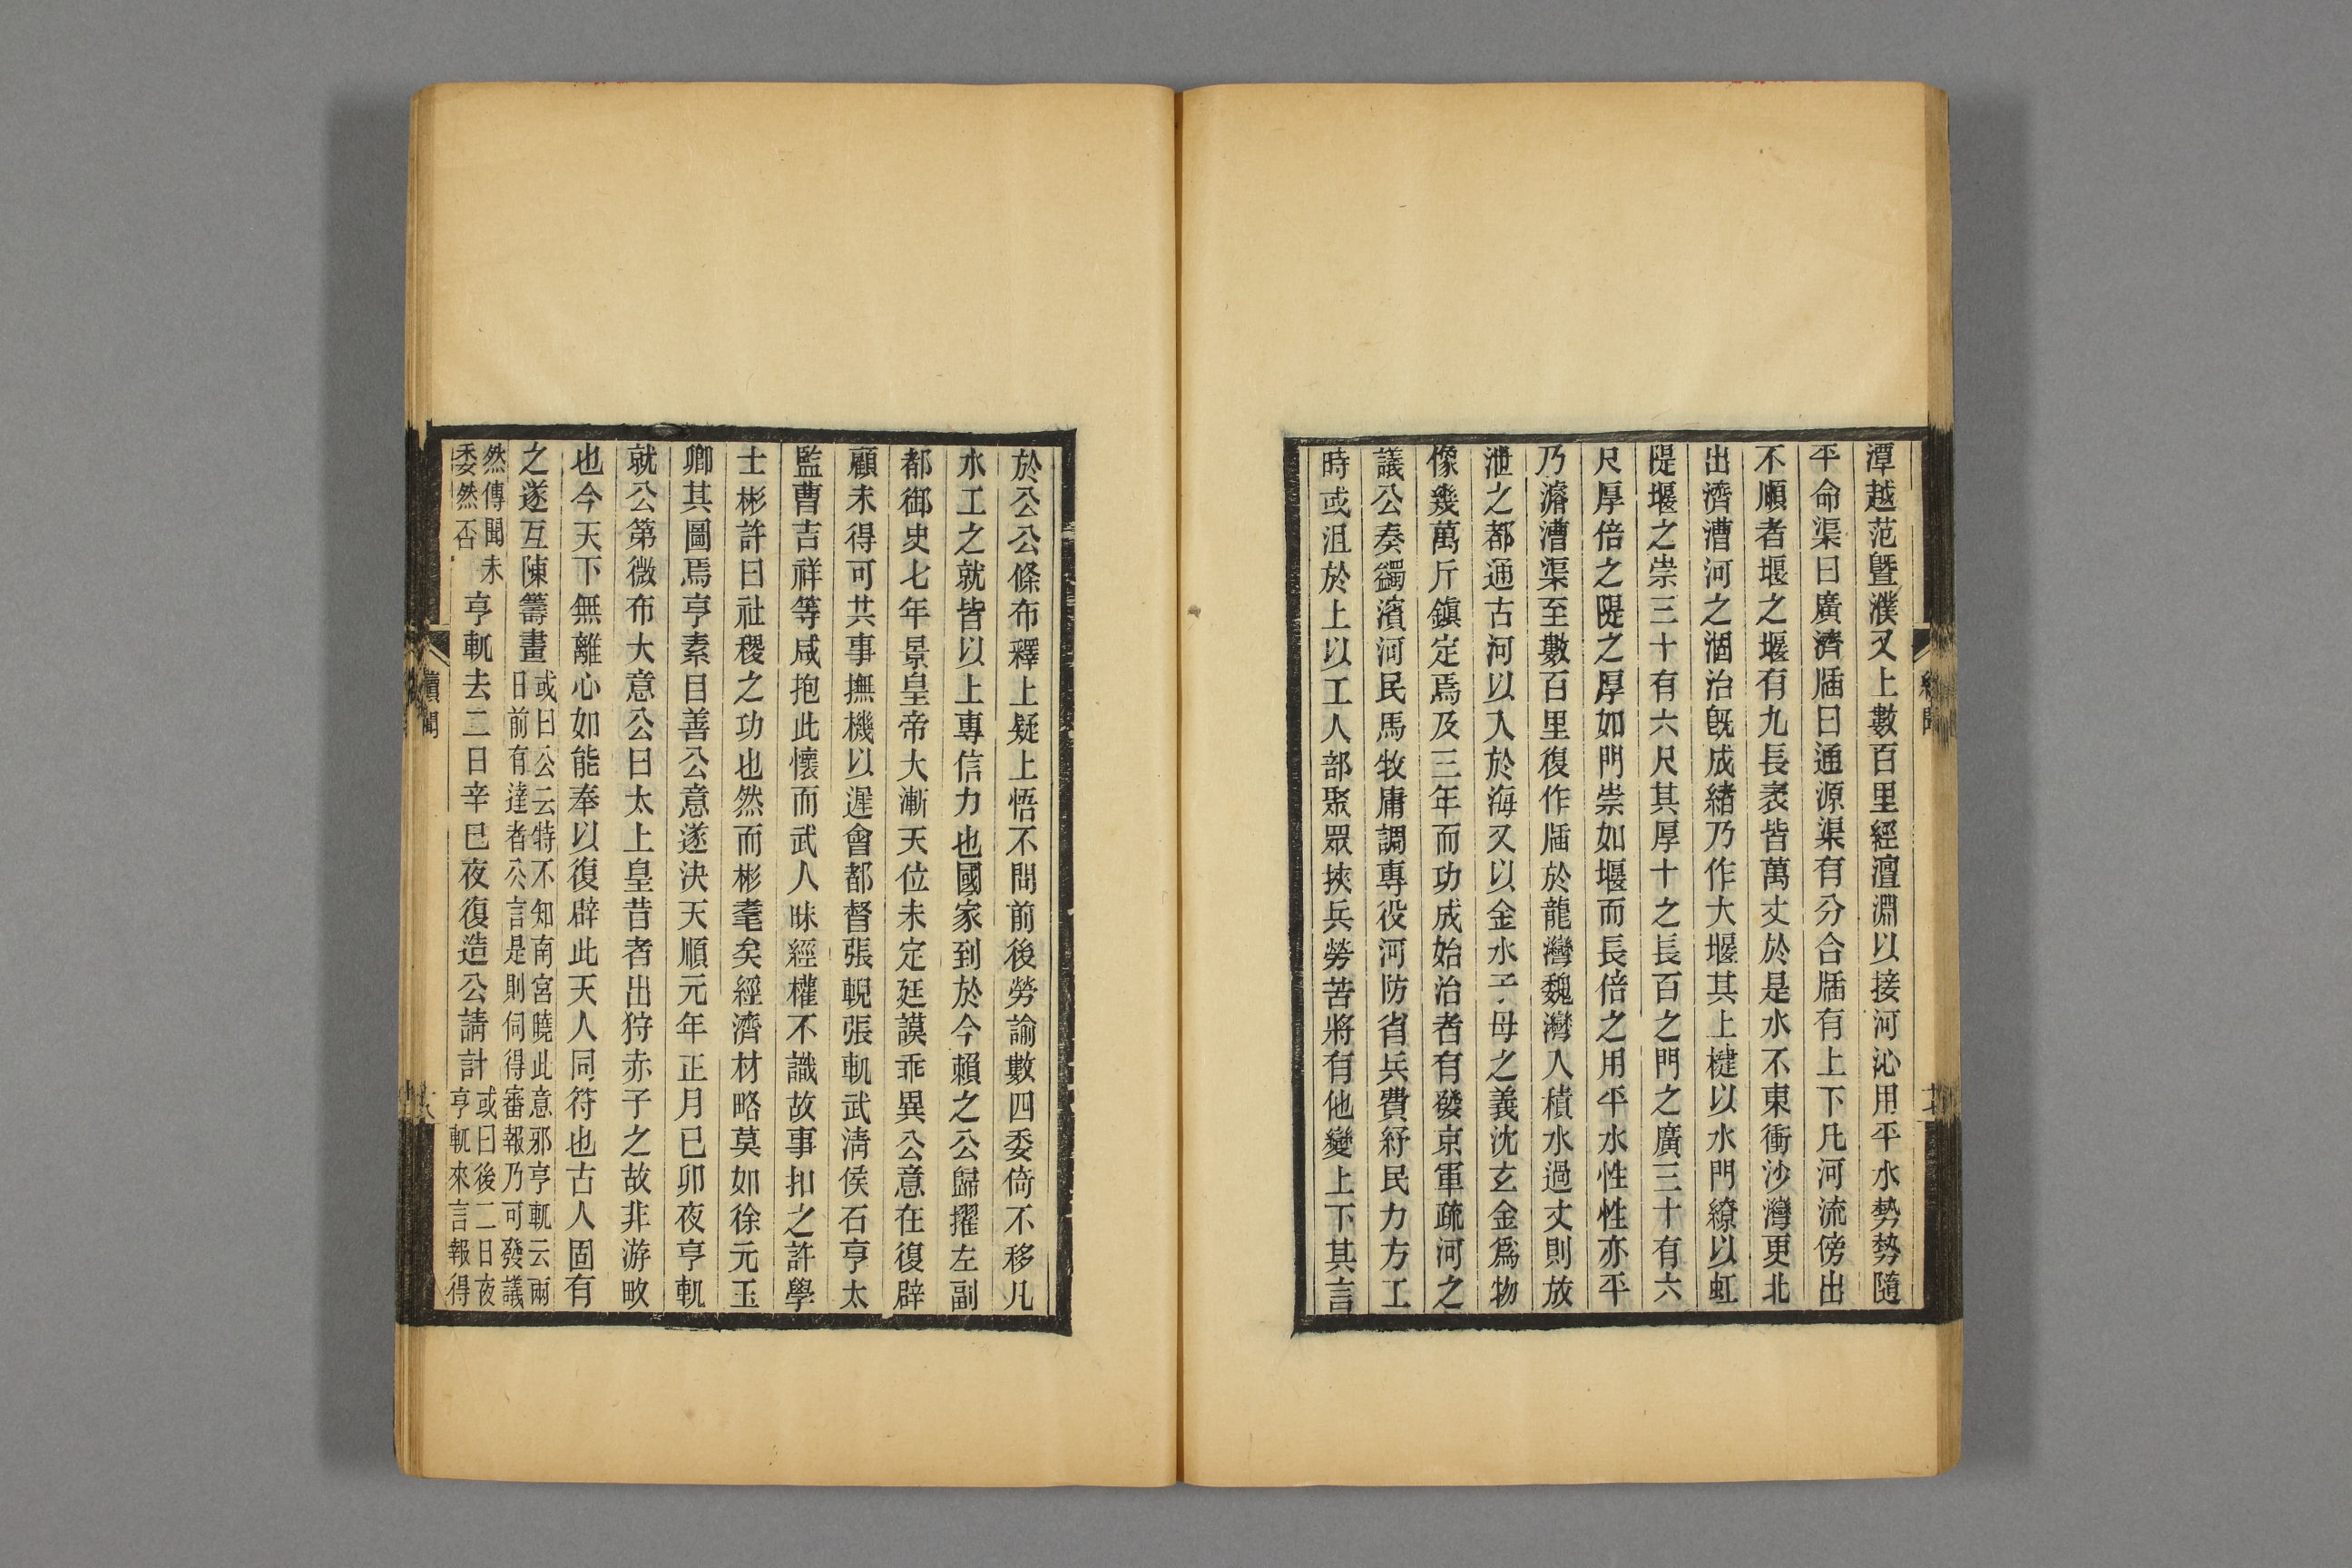 潭越范曁濮又上數百里經澶淵以接河沁用平水勢勢隨
平命渠曰廣濟牐曰通源渠有分合牐有上下凡河流傍出
不順者堰之堰有九長袤皆萬丈於是水不東衝沙灣更北
出濟漕河之涸治旣成緒乃作大堰其上楗以水門繚以虹
隄堰之崇三十有六尺其厚十之長百之門之廣三十有六
尺厚倍之隄之厚如門崇如堰而長倍之用平水性性亦平
乃濬漕渠至數百里復作牐於龍灣魏灣人積水過丈則放
泄之都通古河以入於海又以金水子母之義沈玄金爲物
像幾萬斤鎭定焉及三年而功成始治者有發京軍疏河之
議公奏蠲濱河民馬牧庸調專役河防省兵費紓民力方工
時或沮於上以工人部聚眾挾兵勞苦將有他變上下其言
於公公條布釋上疑上悟不問前後勞諭數四委倚不移凡
水工之就皆以上專信力也國家到於今賴之公歸擢左副
都御史七年景皇帝大漸天位未定廷謨乖異公意在復辟
顧未得可共事撫機以遲會都督張輗張軏武淸侯石亨太
監曹吉祥等咸抱此懷而武人昧經權不識故事扣之許學
士彬許曰社稷之功也然而彬耄矣經濟材略莫如徐元玉
卿其圖焉亨素目善公意遂決天順元年正月已卯夜亨軏
就公第微布大意公曰太上皇昔者出狩赤子之故非游畋
也今天下無離心如能奉以復辟此天人同符也古人固有
之遂互陳籌畫或曰公云特不知南宮曉此意邪亨軏云兩
日前有達者公言是則伺得審報乃可發議
然傳聞未
委然否亨軏去二日辛巳夜復造公請計或曰後二日夜
亨軏來言報得
續聞